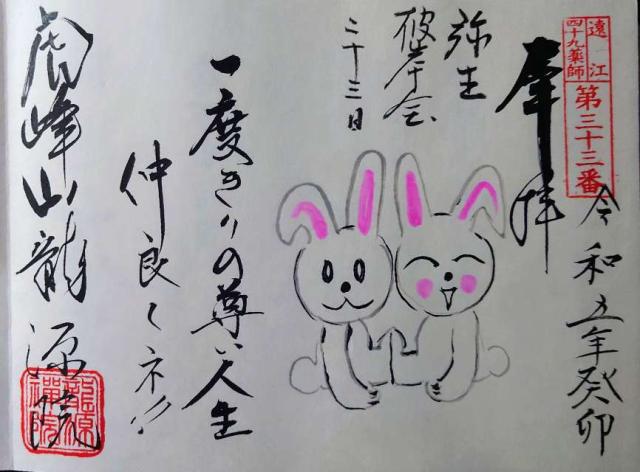 遠江
四十九薬師
第三十三番
奉拝
令和五年癸卯
弥生
彼岸会
二十三日
一度きりの尊い人生
仲良くネ!!
龍源院